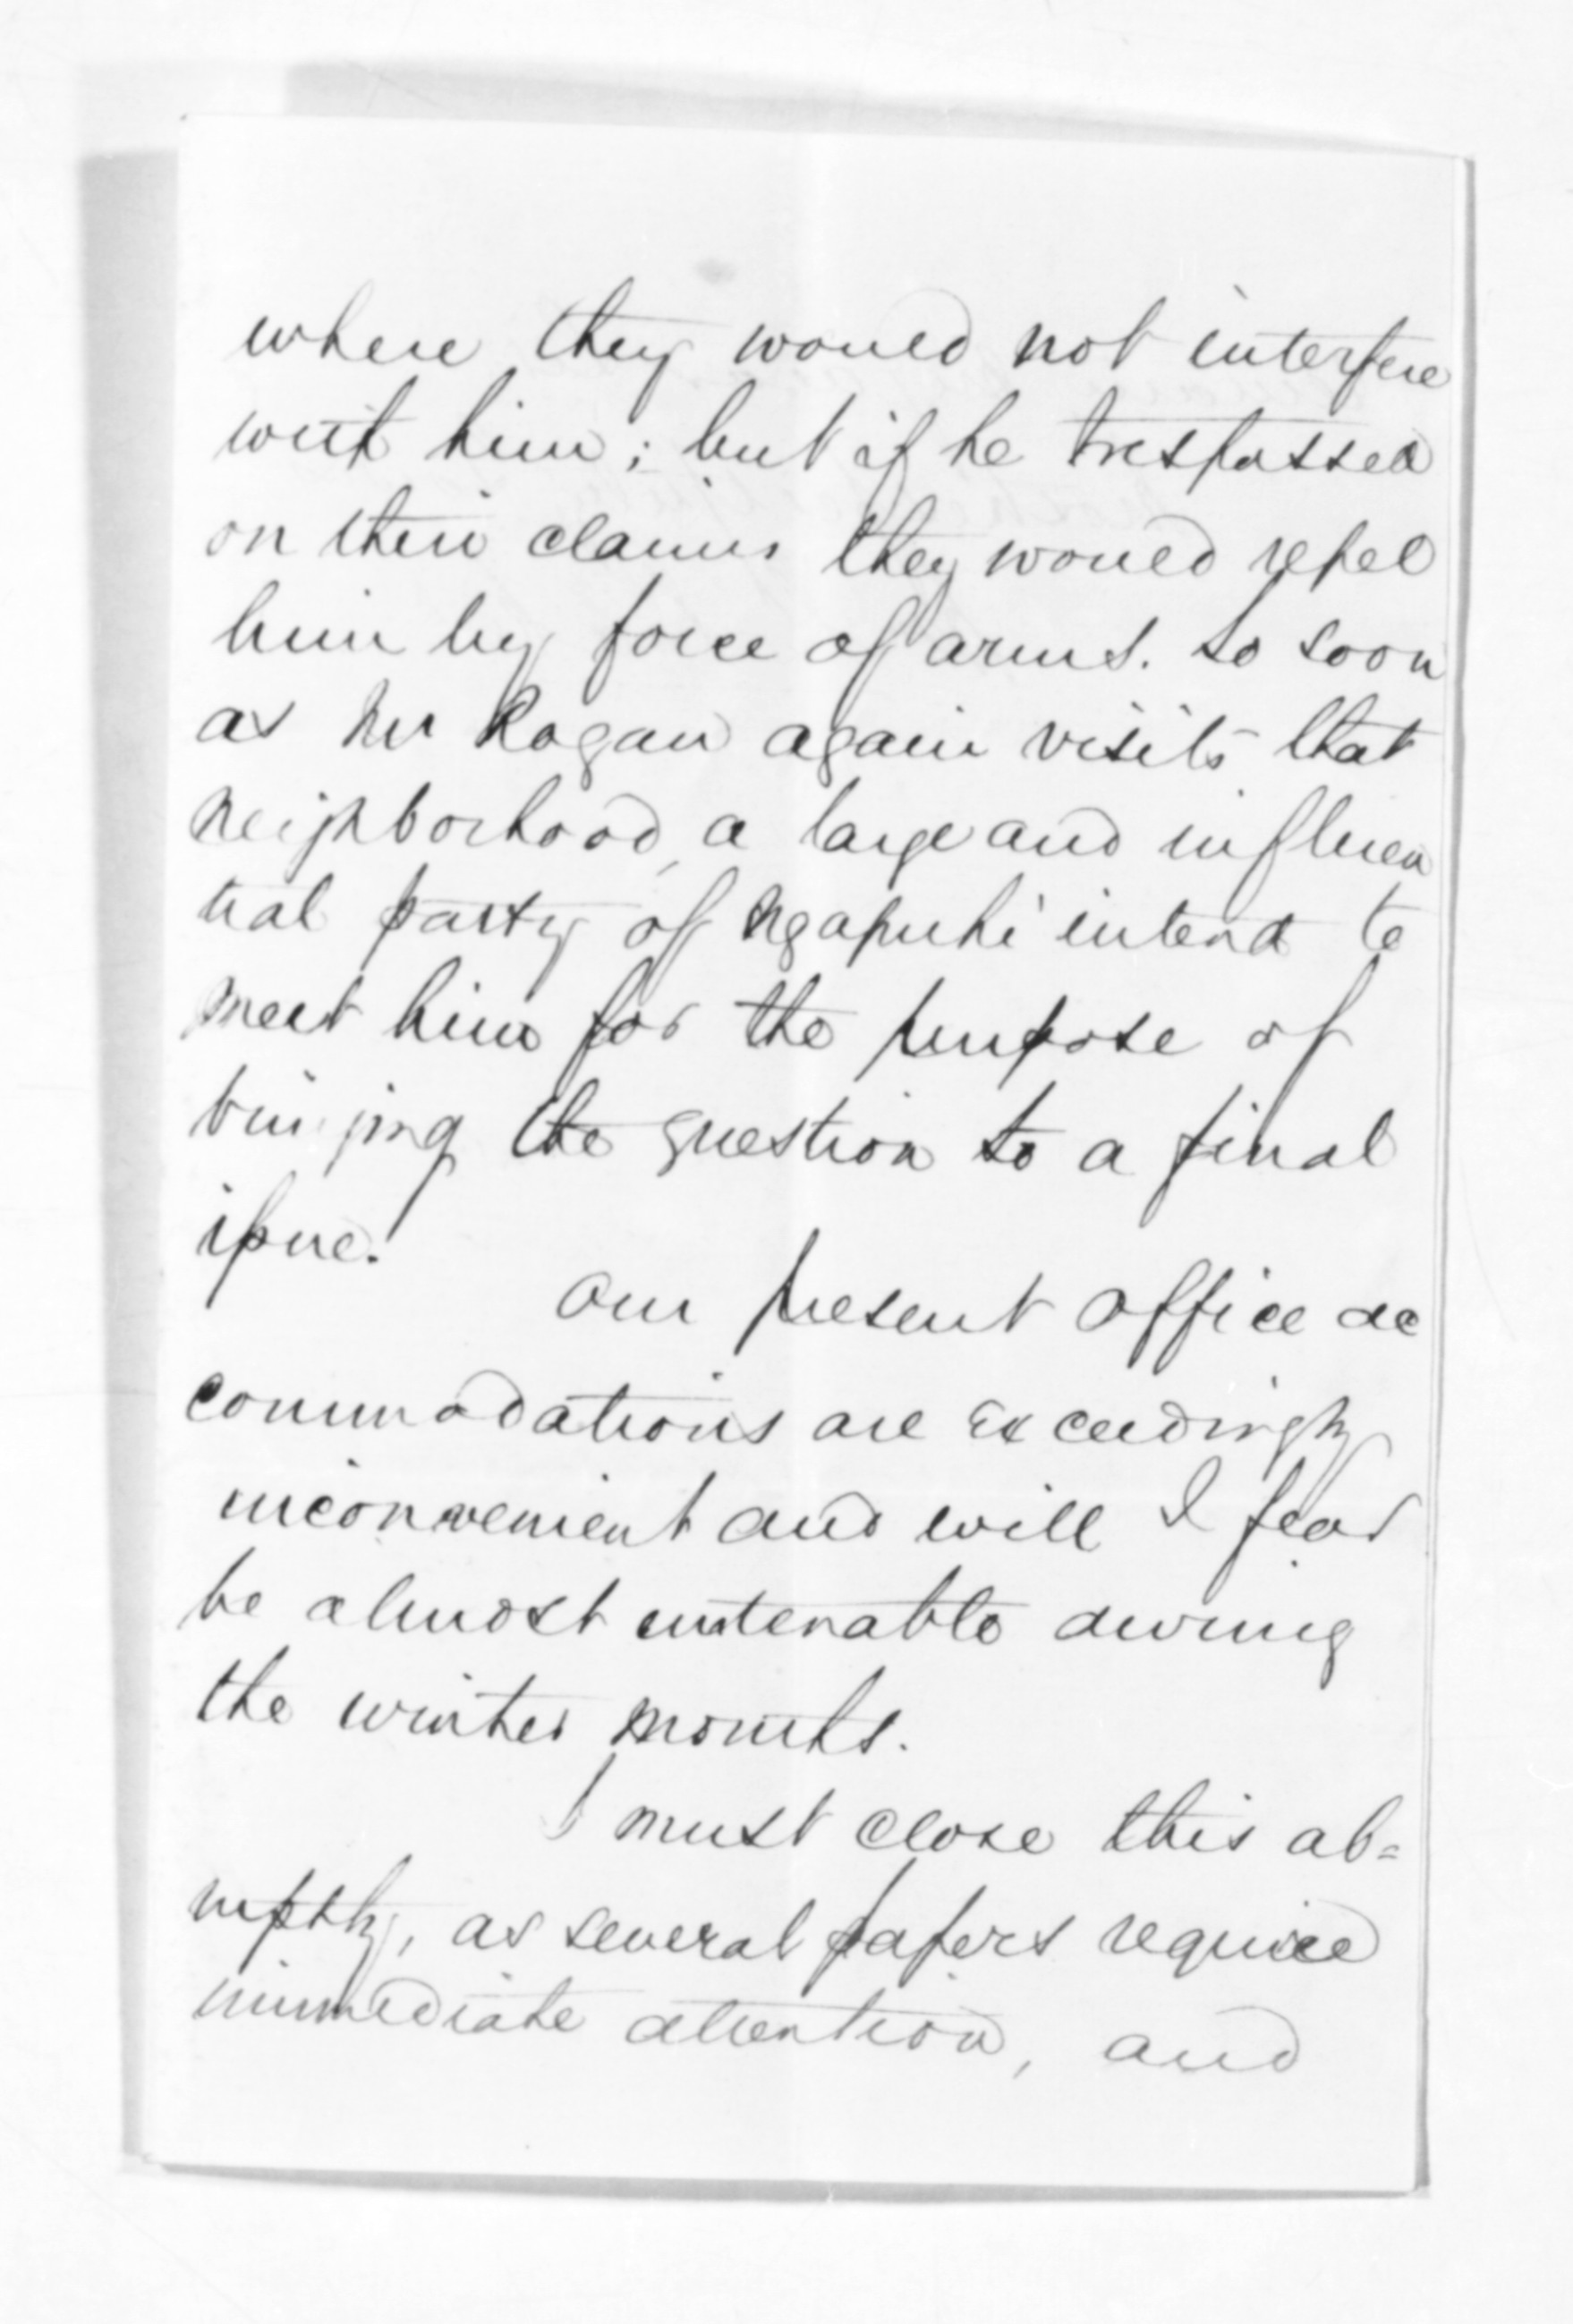 where they would not interfere
with him; but if he trespassed
on their claims they would repel
him by force of arms. So soon
as Mr Rogan again visits that
neighborhood, a large and influen
tial party of Ngapuhi intend to
meet him for the purpose of
bringing the question to a final
issue.
Our present office ac
commodations are exceedingly
inconvenient and will I fear
be almost untenable during
the winter months.
I must close this ab=
ruptly, as several papers require
immediate attention, and